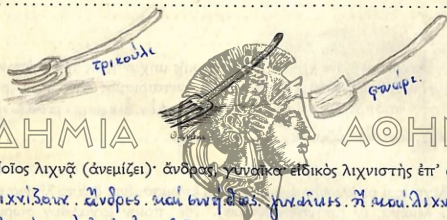 τρικούλι
φτυάρι.
ΔΗΜΙΑ ΑΘΗ
Ποῖος λιχνᾷ (ἀνεμίζει)· ἄνδρας, γυναῖκα· εἰδικὸς λιχνιστὴς ἐπ'
λιχνίζουν ἄνδρες καὶ συνήθως γυναῖκες. ἢ καὶ